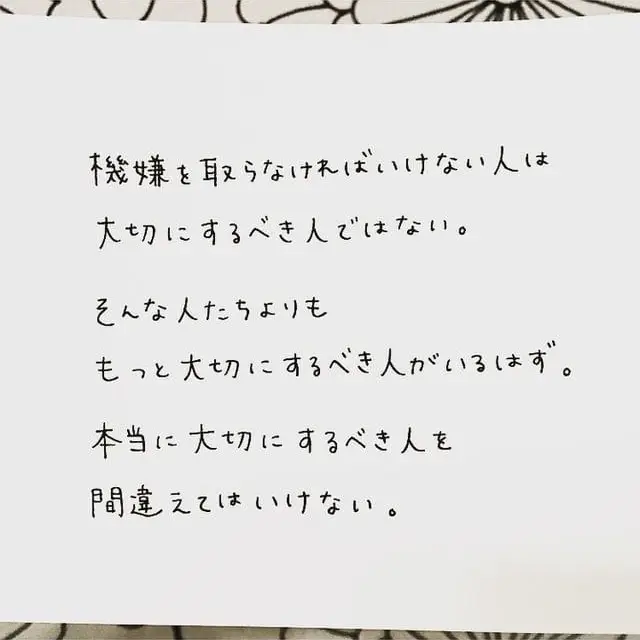 機嫌を取らなければいけない人は
大切にするべき人ではない。
そんな人たちよりも
もっと大切にするべき人がいるはず。
本当に大切にするべき人を
間違えてはいけない。